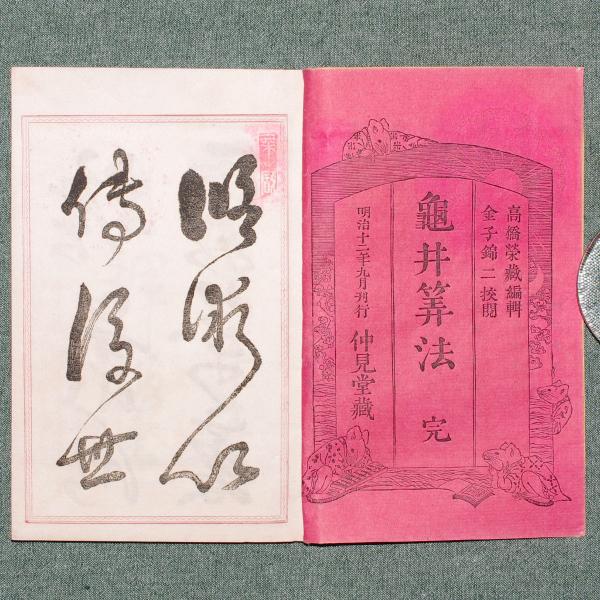 高橋榮藏編輯
金子錦二挍閲
龜井筭法 完
明治十二年九月刊行 仲見堂藏
術以
傳後世